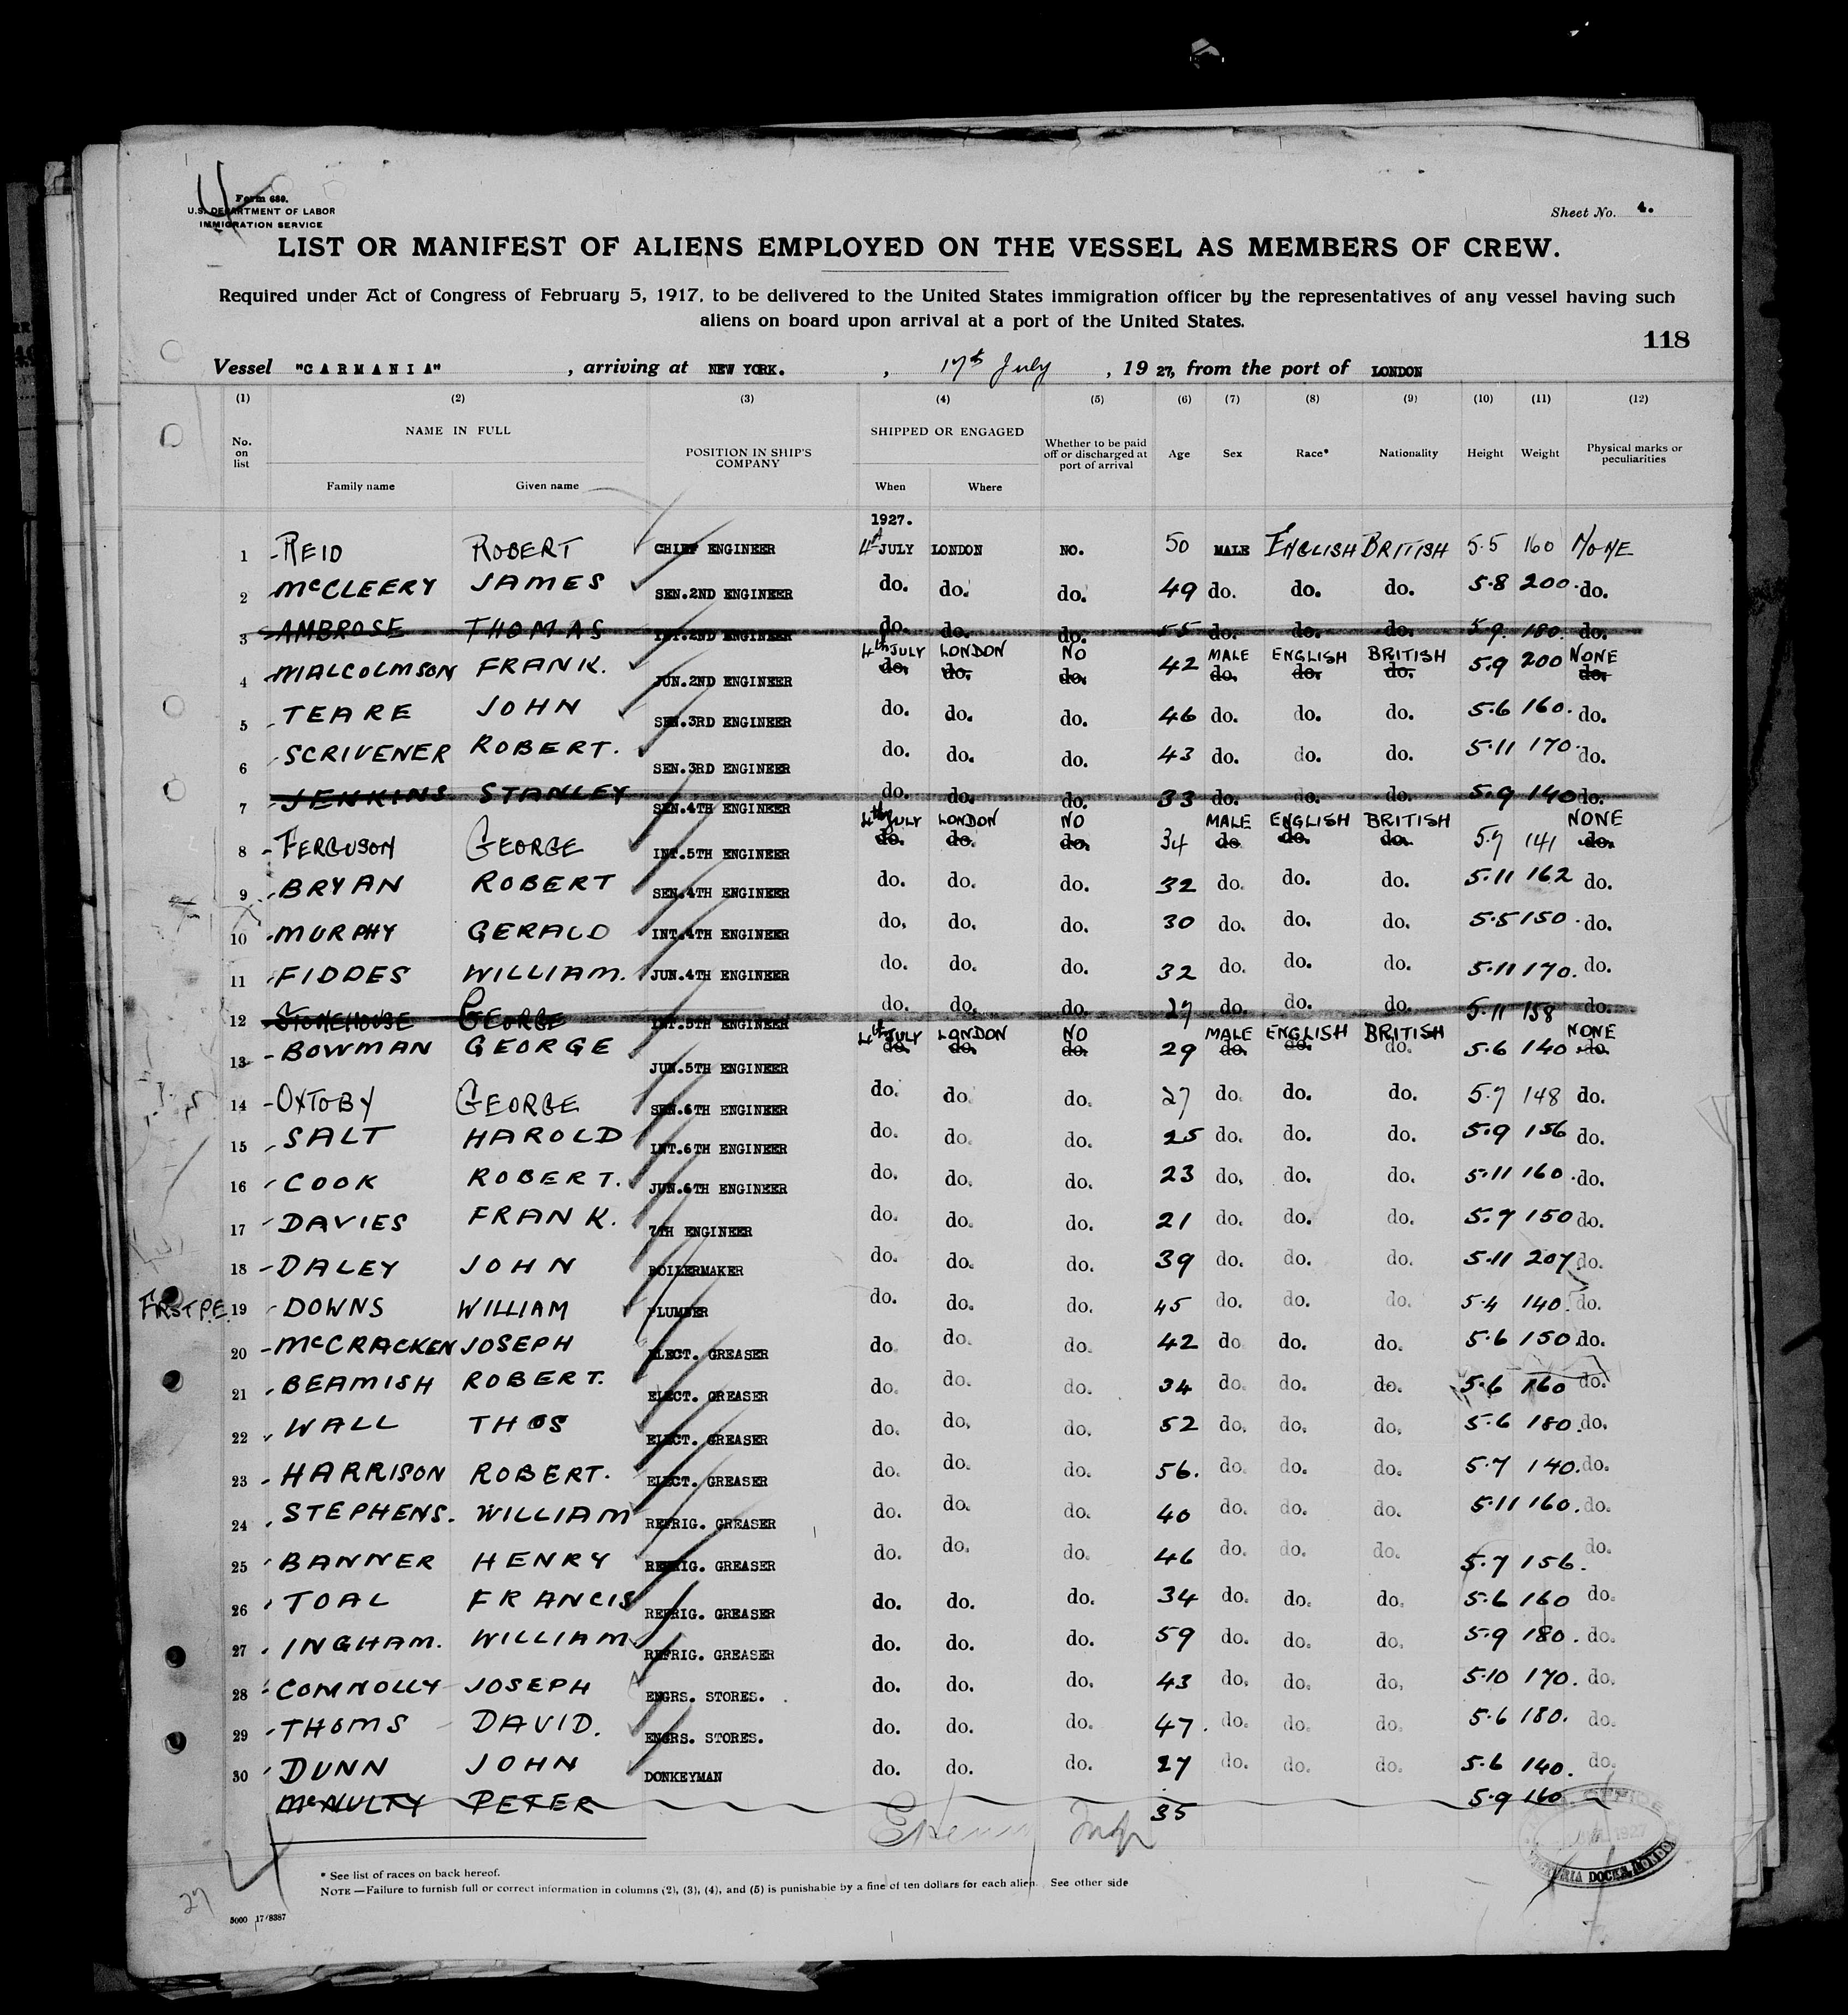 Form 680.
U.S. DEPARTMENT OF LABOR
IMMIGRATION SERVICE
Sheet No. 4.
LIST OR MANIFEST OF ALIENS EMPLOYED ON THE VESSEL AS MEMBERS OF CREW.
Required under Act of Congress of February 5, 1917, to be delivered to the United States immigration officer by the representatives of any vessel having such
aliens on board upon arrival at a port of the United States.
118
Vessel "CARMANIA" , arriving at NEW YORK. , 17th July , 19 27, from the port of LONDON
(1) (2) (3) (4) (5) (6) (7) (8) (9) (10) (11) (12)
No. on list NAME IN FULL Family name Given name POSITION IN SHIP'S COMPANY SHIPPED OR ENGAGED When Where Whether to be paid off or discharged at port of arrival Age Sex Race* Nationality Height Weight Physical marks or peculiarities
1927.
1 REID ROBERT CHIEF ENGINEER 4th JULY LONDON NO. 50 MALE ENGLISH BRITISH 5.5 160 NONE
2 McCLEERY JAMES SEN.2ND ENGINEER do. do. do. 49 do. do. do. 5.8 200 do.
3 AMBROSE THOMAS INT.2ND ENGINEER do. do. do. 55 do. do. do. 5.9. 180. do.
4th JULY LONDON NO MALE ENGLISH BRITISH NONE
4 MALCOLMSON FRANK. JUN.2ND ENGINEER do. do. do. 42 do. do. do. 5.9 200 do.
5 TEARE JOHN SEN.3RD ENGINEER do. do. do. 46 do. do. do. 5.6 160. do.
6 SCRIVENER ROBERT. SEN.3RD ENGINEER do. do. do. 43 do. do. do. 5.11 170. do.
7 JENKINS STANLEY SEN.4TH ENGINEER do. do. do. 33 do. do. do. 5.9 140 do.
4th JULY LONDON NO MALE ENGLISH BRITISH NONE
8 FERGUSON GEORGE INT.5TH ENGINEER do. do. do. 34 do do. do. 5.7 141 do.
9 BRYAN ROBERT SEN.4TH ENGINEER do. do. do. 32 do. do. do. 5.11 162 do.
10 MURPHY GERALD INT.4TH ENGINEER do. do. do. 30 do. do. do. 5.5 150 do.
11 FIDDES WILLIAM. JUN.4TH ENGINEER do. do. do. 32 do. do. do. 5.11 170. do.
12 STONEHOUSE GEORGE INT.5TH ENGINEER do. do. do. 27 do. do. do. 5.11 158 do.
4th JULY LONDON NO MALE ENGLISH BRITISH NONE
13 BOWMAN GEORGE JUN.5TH ENGINEER do. do. do. 29 do. do. do. 5.6 140 do.
14 OXTOBY GEORGE SEN.6TH ENGINEER do. do. do. 27 do. do. do. 5.7 148 do.
15 SALT HAROLD INT.6TH ENGINEER do. do. do. 25 do. do. do. 5.9 156 do.
16 COOK ROBERT. JUN.6TH ENGINEER do. do. do. 23 do. do. do. 5.11 160 do.
17 DAVIES FRANK. 7TH ENGINEER do. do. do. 21 do. do. do. 5.7 150 do.
18 DALEY JOHN BOILERMAKER do. do. do. 39 do. do. do. 5.11 207 do.
FIRST P.E. 19 DOWNS WILLIAM PLUMBER do. do. do. 45 do. do. do. 5.4 140. do.
20 McCRACKEN JOSEPH ELECT. GREASER do. do. do. 42 do do. do. 5.6 150 do.
21 BEAMISH ROBERT. ELECT. GREASER do. do. do. 34 do. do. do. 5.6 160 do.
22 WALL THOS ELECT. GREASER do. do. do. 52 do. do. do. 5.6 180. do.
23 HARRISON ROBERT. ELECT. GREASER do. do. do. 56. do. do. do. 5.7 140. do.
24 STEPHENS. WILLIAM REFRIG. GREASER do. do. do. 40 do. do. do. 5.11 160. do.
25 BANNER HENRY REFRIG. GREASER do. do. do. 46 do. do. do. 5.7 156. do.
26 TOAL FRANCIS REFRIG. GREASER do. do. do. 34 do. do. do. 5.6 160 do.
27 INGHAM. WILLIAM REFRIG. GREASER do. do. do. 59 do. do. do. 5.9 180. do.
28 CONNOLLY JOSEPH ENGRS. STORES. do. do. do. 43 do. do. do. 5.10 170. do.
29 THOMS DAVID. ENGRS. STORES. do. do. do. 47. do. do. do. 5.6 180. do.
30 DUNN JOHN DONKEYMAN do. do. do. 27 do. do. do. 5.6 140. do.
McNULTY PETER 35 5.9 160
1927
VICTORIA DOCKS, LONDON
* See list of races on back hereof.
NOTE—Failure to furnish full or correct information in columns (2), (3), (4), and (5) is punishable by a fine of ten dollars for each alien. See other side
27
5000 17/8387